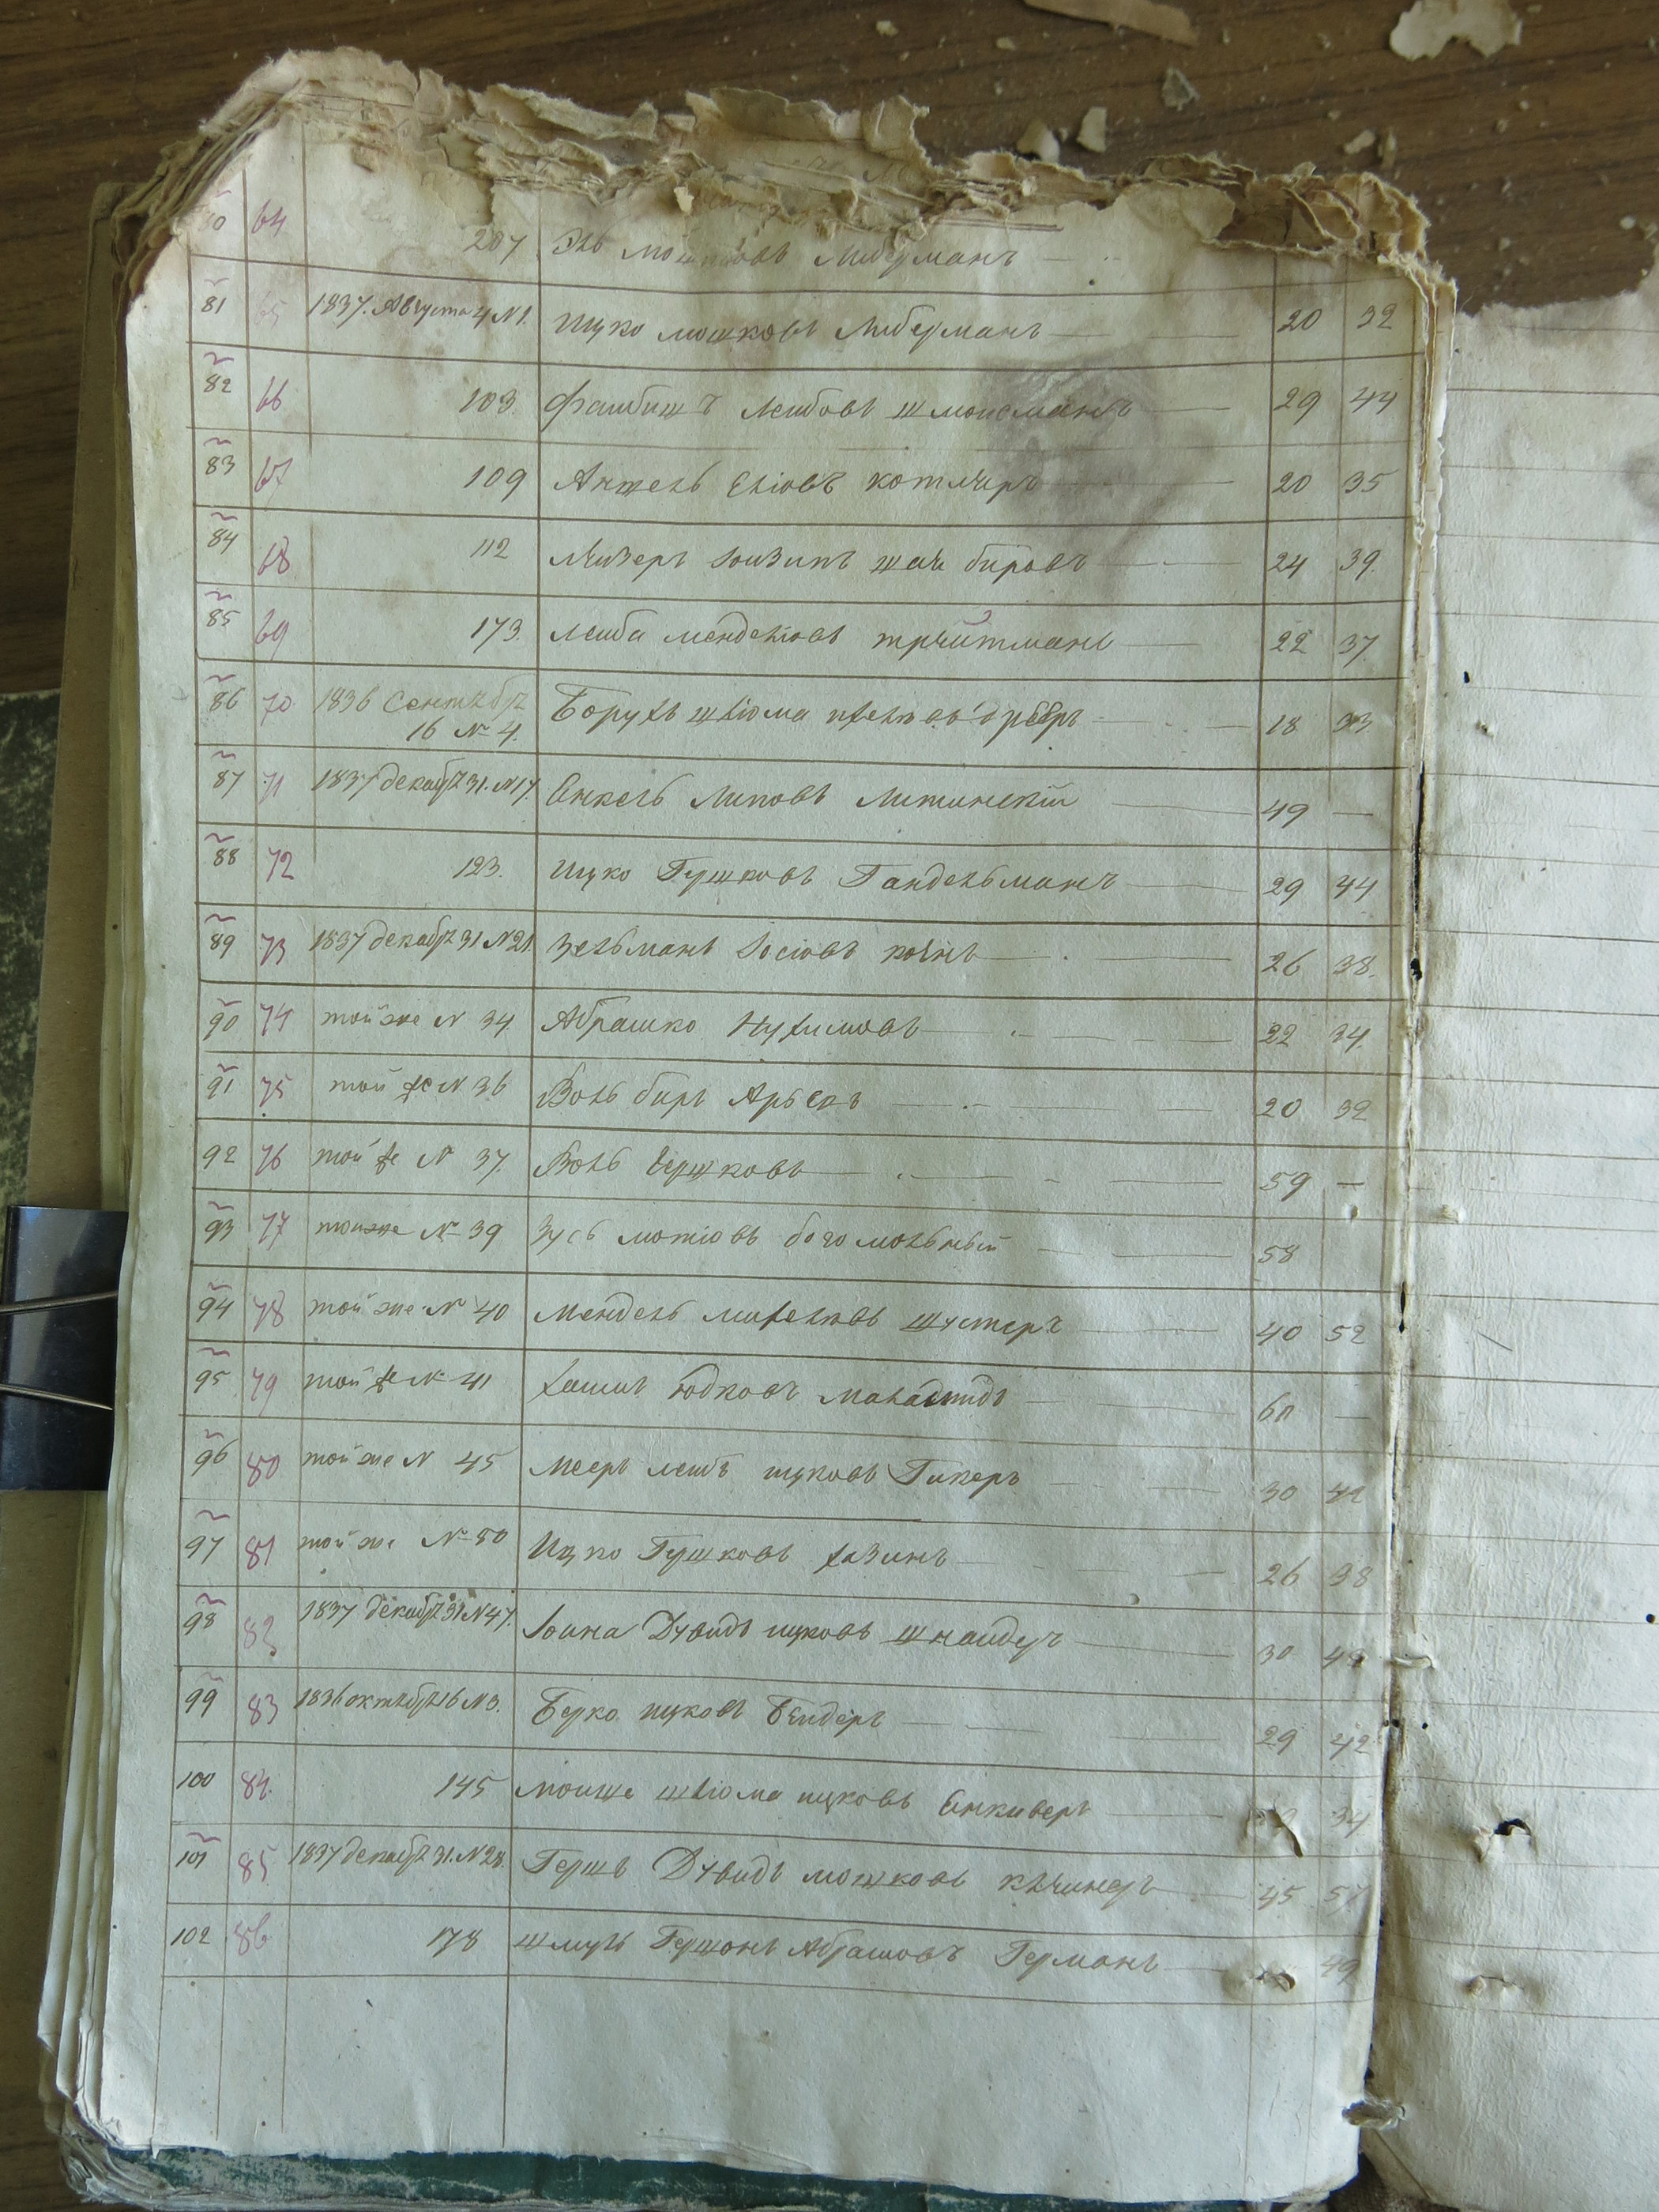 64 207 Эль Мошковъ Либерманъ
81 65 1837. Августа 4 N 1. Ицко Мошковъ Либерманъ 20 32
82 66 103. Файбишъ Лейбовъ 29 44
83 67 109 Аншель Еліовъ Котляръ 20 35
84 68 112 24 39.
85 69 173. Лейба Менделіовъ 22 37.
86 70 1836 Сентябр
16 N 4. Борухъ Шліома 18 33
87 71 1837 декабр 31. N 17. Енкель Липовъ Литинскій 49 —
88 72 123. Ицко Гершковъ Гандельманъ 29 44
89 73 1837 декабр 31 N 21. Зельманъ Іосіовъ 26 38.
90 74 той же N 34. Абрашко Нухимовъ 22 34.
91 75 той же N 36 Воль биръ 20 32
92 76 той же N 37. Воль Гершковъ 59 —
93 77 тойже N 39 Зусь Мотіовъ богомольный 58
94 78 той же N 40 Мендель Михелевъ Шустеръ 40 52
95 79 той же N 41 Хаимъ Юдковъ 60 —
96 80 той же N 45 Мееръ Лейбъ Ицковъ Гикеръ 30 42
97 81 той же N 50 Ицко Гершковъ Хазинъ 26 38
98 82 1837 декабр 31 N 47. Іойна Дувидъ Ицковъ Шнайдеръ 30 42
99 83 1836 октябр 16 N 3. Берко Ицковъ Бендеръ 29 42
100 84. 145 Мойше Шліома Ицковъ 34
101 85 1837 декабр 31. N 28. Гершъ Дувидъ Мошковъ 45 57
102 86 178 Шмуль Гершонъ Абрамовъ Германъ 49